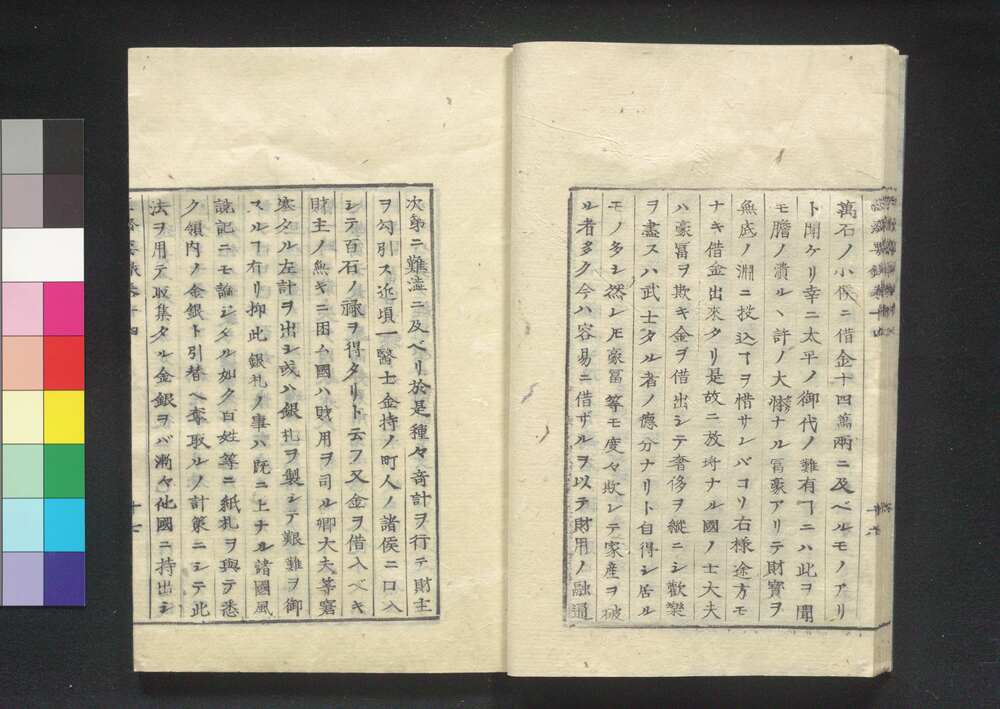 萬石ノ小侯ニ借金十四萬兩ニ及ベルモノアリ
ト聞ケリ幸ニ太平ノ御代ノ難有ヿニハ此ヲ聞
モ膽ノ潰ルヽ許ノ大ナル冨豪アリテ財寳ヲ
無底ノ淵ニ投込ヿヲ惜サレバコソ右樣途方モ
ナキ借金出來タリ是故ニ放埓ナル國ノ士大夫
ハ豪冨ヲ欺キ金ヲ借出シテ奢侈ヲ縱ニシ歡樂
ヲ盡スハ武士タル者ノ德分ナリト自得シ居ル
モノ多シ然レㇳモ豪冨等モ度々欺レテ家産ヲ破
ル者多ク今ハ容易ニ借ザルヲ以テ財用ノ融通
次第ニ難澁ニ及ベリ於是種々奇計ヲ行テ財主
ヲ勾引ス近頃一醫士金持ノ町人ノ諸侯ニ口入
シテ百石ノ禄ヲ得タリト云フ又金ヲ借入ベキ
財主ノ無キニ困ム國ハ財用ヲ司ル卿大夫等窘
塞タル左計ヲ出シ或ハ銀札ヲ製シテ艱難ヲ御
スルヿ有リ抑此銀札ノ事ハ既ニ上ナル諸國風
説記ニモ論シタル如ク百姓等ニ紙札ヲ與テ悉
ク領内ノ金銀ト引替ヘ奪取ルノ計策ニシテ此
法ヲ用テ取集タル金銀ヲバ漸々他國ニ持出シ
十七